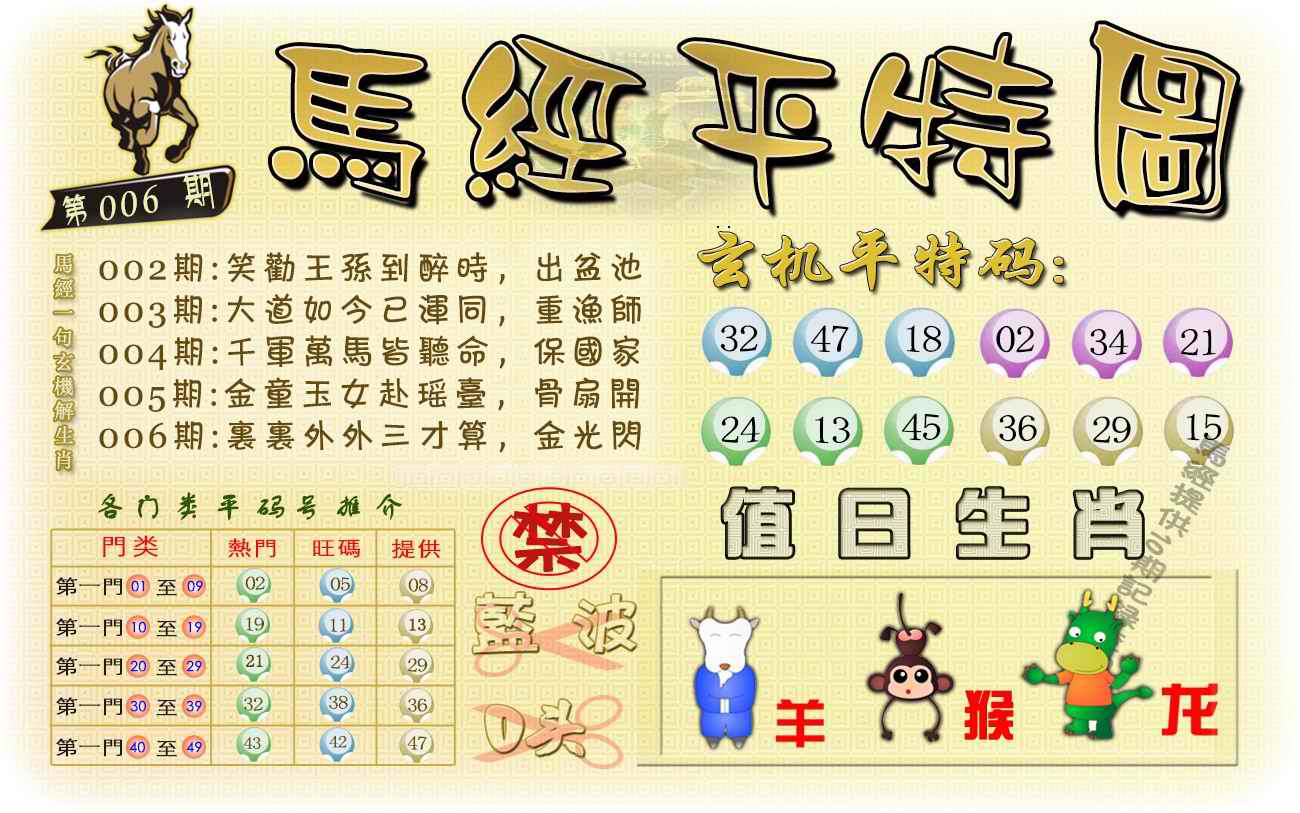 馬經平特圖
第006期
馬經一句玄機解生肖
002期:笑勸王孫到醉時，出盆池
003期:大道如今已渾同，重漁師
004期:千軍萬馬皆聽命，保國家
005期:金童玉女赴瑶臺，骨扇開
006期:裏裏外外三才算，金光閃
玄机平特码:
32 47 18 02 34 21
24 13 45 36 29 15
各门类平码号推介
門类 熱門 旺碼 提供
第一門 01 至 09 02 05 08
第一門 10 至 19 19 11 13
第一門 20 至 29 21 24 29
第一門 30 至 39 32 38 36
第一門 40 至 49 43 42 47
禁
藍波
0头
值日生肖
羊 猴 龙
馬經提供
期記録